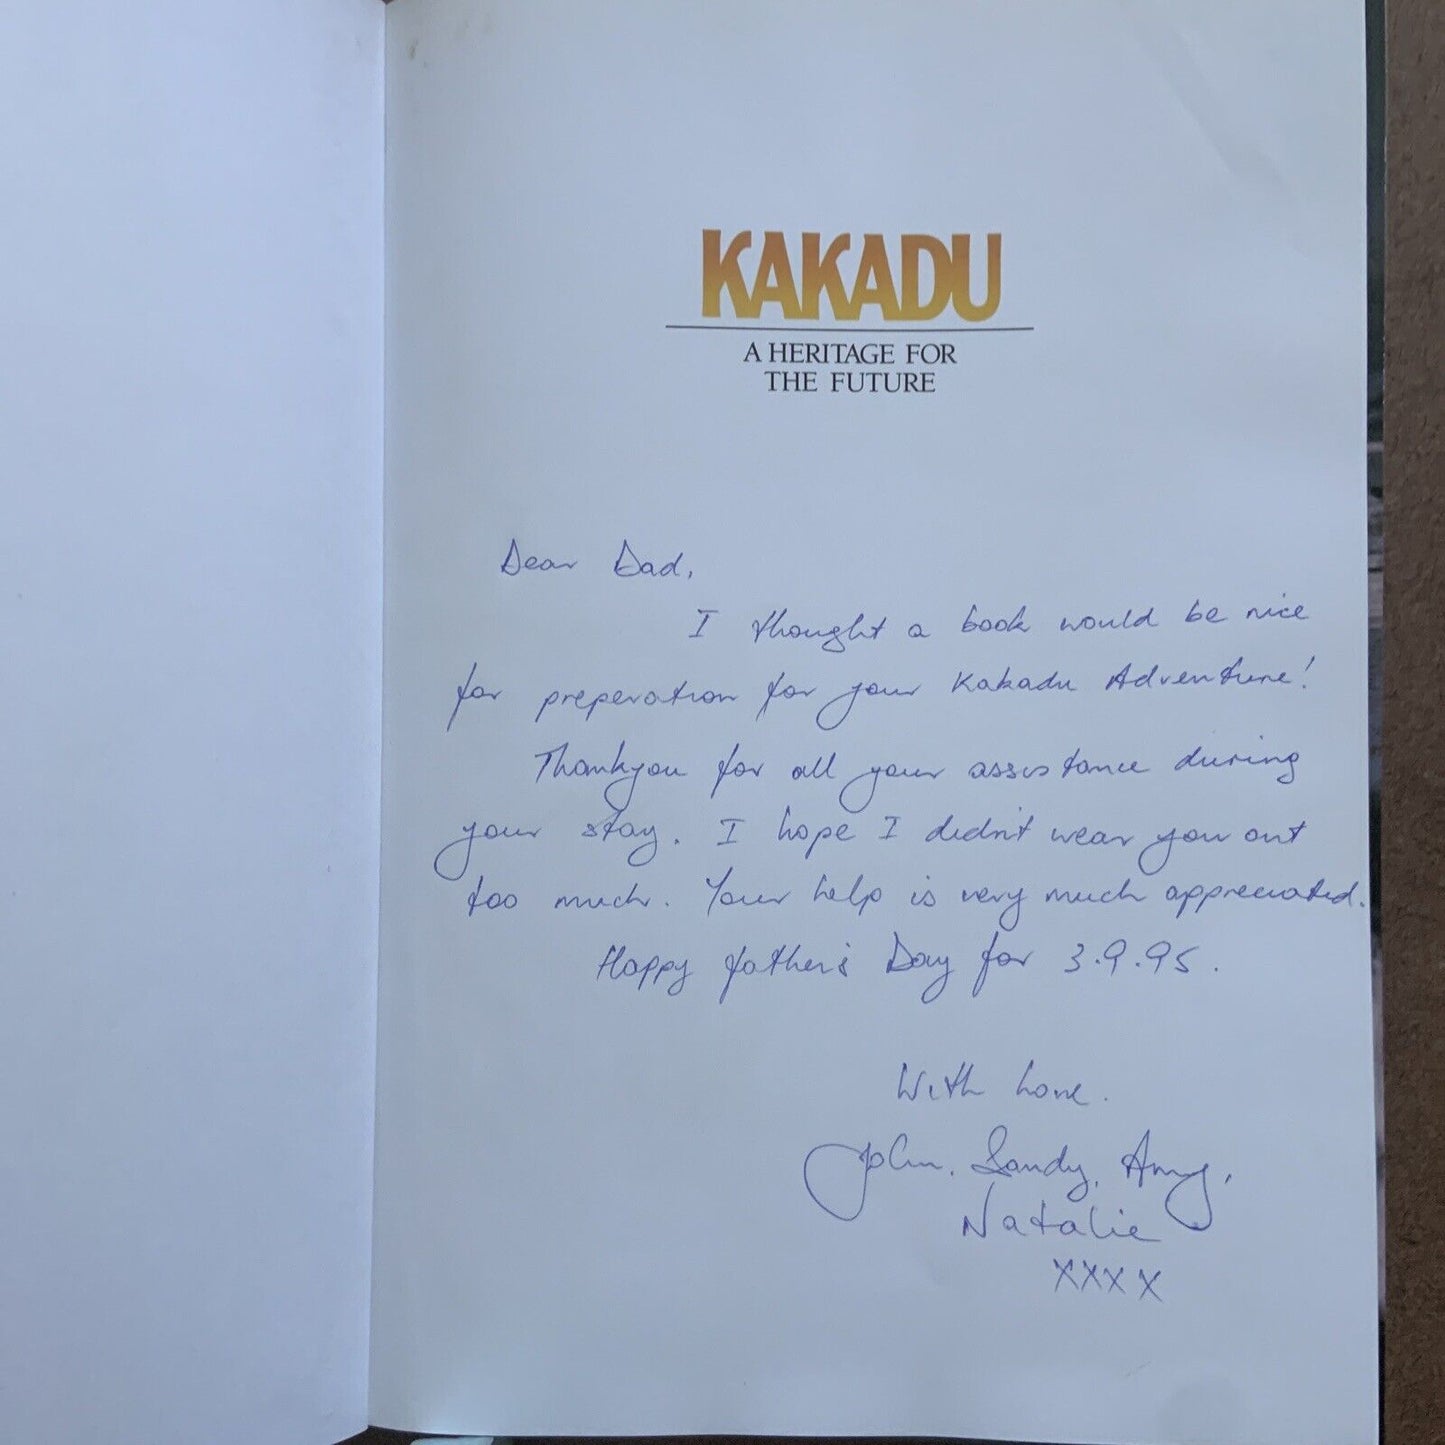 KAKADU
A HERITAGE FOR
THE FUTURE
Dear Dad,
I thought a book would be nice
for preperation for your Kakadu Adventure!
Thankyou for all your assistance during
your stay. I hope I didn't wear you out
too much. Your help is very much appreciated.
Happy father's Day for 3.9.95.
With Love.
John, Sandy, Amy,
Natalie
XXXX